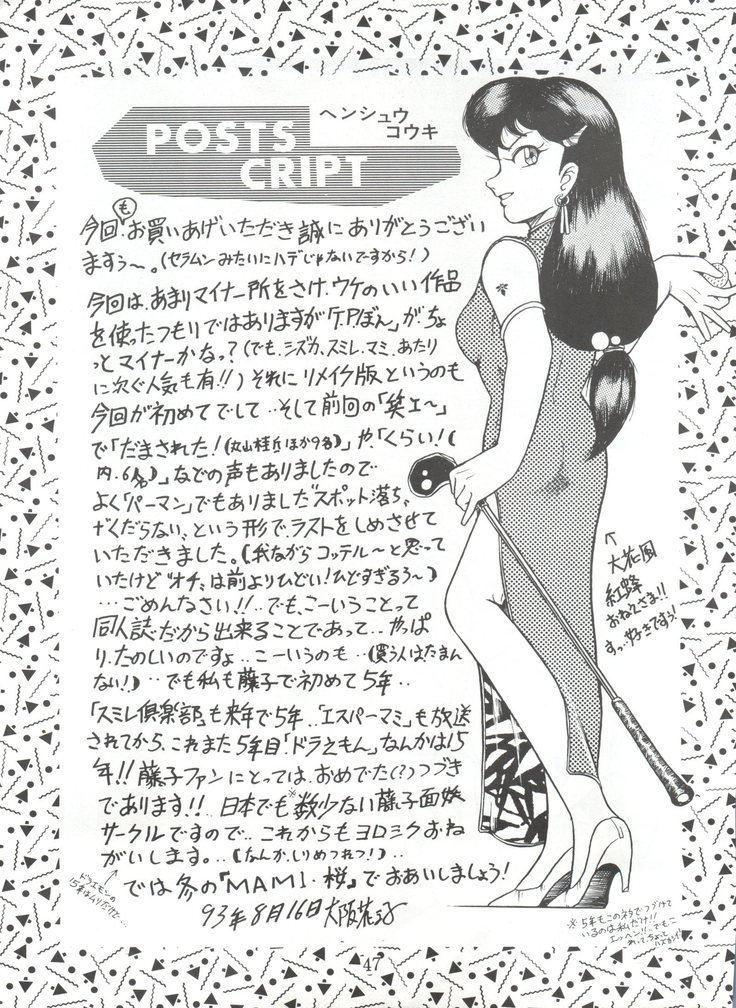 POSTS
CRIPT
ヘンシュウ
コウキ
今回もお買いあげいただき誠にありがとうござい
ますぅ〜。(セラムンみたいにハデじゃないですから!)
今回は、あまりマイナー所をさけ、ウケのいい作品
を使ったつもりではありますが「T.Pぼん」が、ちょ
っとマイナーかなっ?(でも、シズカ、スミレ、マミ、あたり
に次ぐ人気も有!!)それにリメイク版というのも
今回が初めてでして‥そして前回の「笑ェ〜」
で「だまされた!(丸山桂氏ほか9名)」や、「くらい!(
内、6名)」などの声もありましたので
よく「パーマン」でもありました“スポット落ち、
だくだらない、という形で、ラストをしめさせて
いただきました。(我ながらコッテル〜と思って
いたけど“オチ〟は前よりひどい!ひどすぎるぅ〜)
…ごめんなさい!!‥でも、こーいうことって
同人誌だから出来ることであって‥やっぱ
り、たのしいのですょ‥こーいうのも‥(買う人はたまん
ない!)‥でも私も藤子で初めて5年‥
「スミレ倶楽部」も来年で5年‥「エスパーマミ」も放送
されてから、これまた5年目!「ドラえもん」なんかは15
年!!藤子ファンにとっては、おめでた(?)つづき
であります!!‥日本でも※数少ない藤子
サークルですので‥これからもヨロシクおね
がいします。‥(なんか、しりめつれつ!)‥
では冬の「MAMI・桜」でおあいしましょう!
93年8月16日大阪
↑
紅蜂
おねえさま!!
すっ・好きですぅ!
ドラエモンの
※5年もこのネタでつづけて
いるのは私だけ!!
47